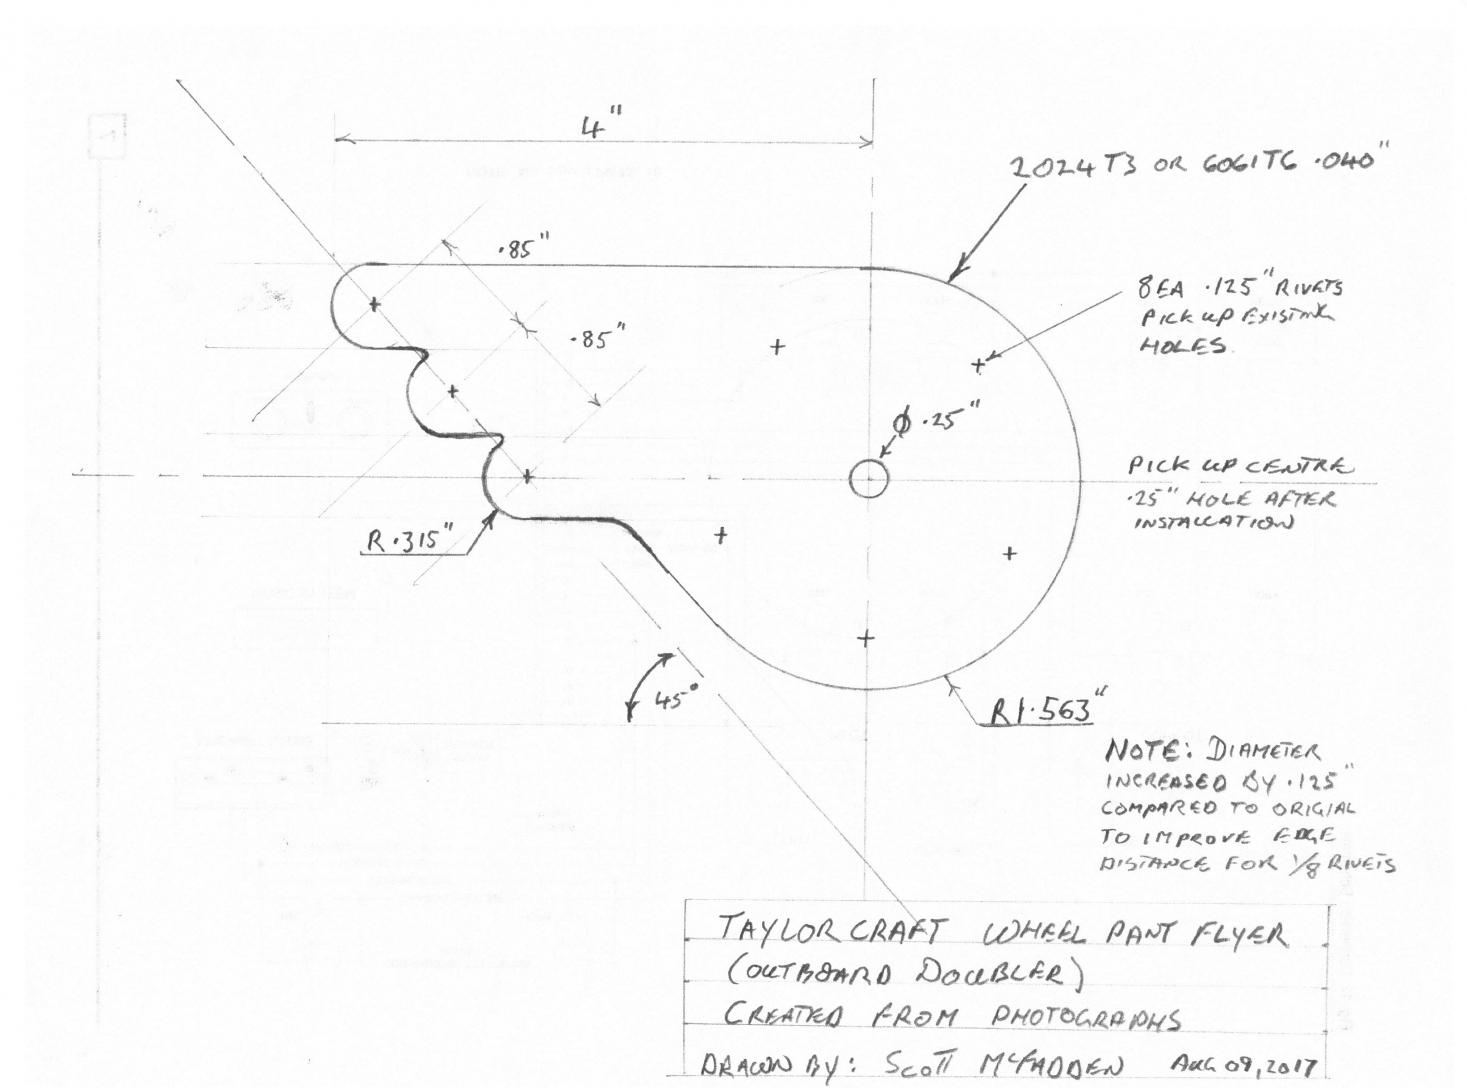 4"
2024 T3 OR 6061T6 .040"
.85"
.85"
8EA .125" RIVETS
PICK UP EXISTING
HOLES.
Ø .25"
PICK UP CENTRE
.25" HOLE AFTER
INSTALLATION
R.315"
45°
R1.563"
NOTE: DIAMETER
INCREASED BY .125"
COMPARED TO ORIGIAL
TO IMPROVE EDGE
DISTANCE FOR 1/8 RIVETS
TAYLORCRAFT WHEEL PANT FLYER
(OUTBOARD DOUBLER)
CREATED FROM PHOTOGRAPHS
DRAWN BY: SCOTT McFADDEN AUG 09, 2017